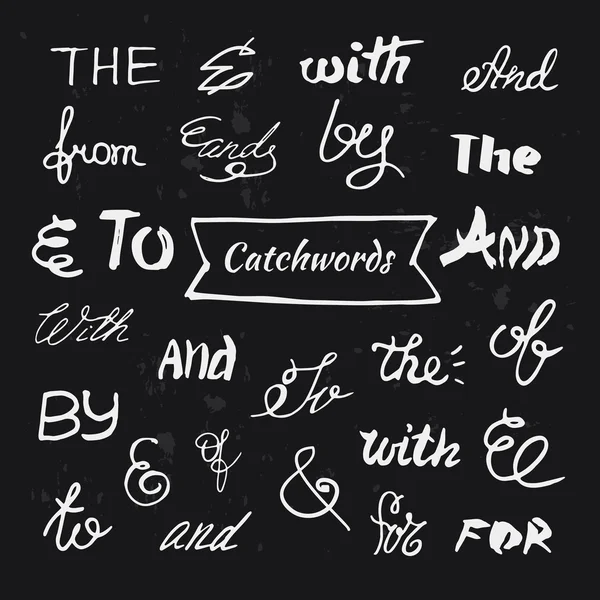 THE & with And
from and by The
& TO Catchwords AND
With AND To the of
BY & of & with &
to and for FOR